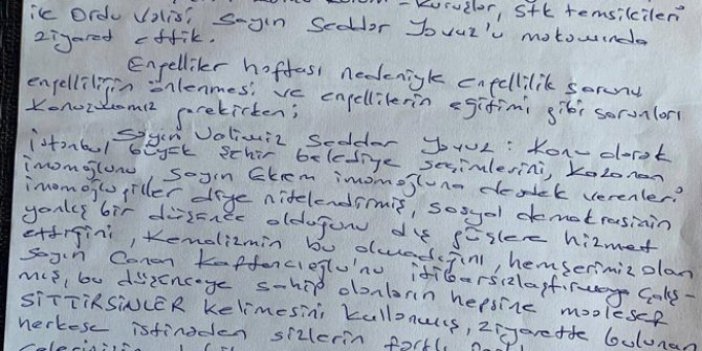 Kuruşlar, stk temsilcileri
ile Ordu Valisi, Sayın Seddar Yavuz'u makamında
ziyaret ettik.
Engelliler haftası nedeniyle engellilik sorunu
engelliliğin önlenmesi ve engellilerin eğitimi gibi sorunları
konuşmamız gerekirken;
Sayın Valimiz Seddar Yavuz: Konu olarak
İstanbul büyük şehir belediye seçimlerini, kazanan
imamoğlunu Sayın Ekrem imamoğluna destek verenleri
imamoğlu giller diye nitelendirmiş, sosyal demokrasinin
yanlış bir düşünce olduğunu dış güçlere hizmet
ettiğini, Kemalizmin bu olmadığını, hemşerimiz olan
Sayın Canan Kaftancıoğlu'nu itibarsızlaştırmaya çalış-
mış, bu düşünceye sahip olanların hepsine maalesef
SİTTİRSİNLER kelimesini kullanmış, ziyarette bulunan
herkese istinaden sizlerin farklı